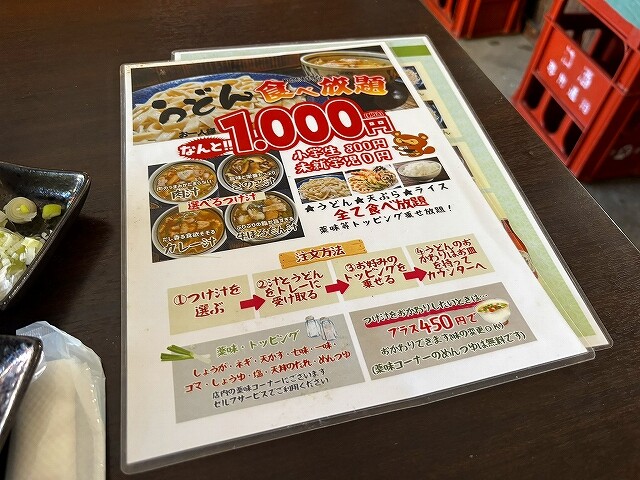 うどん食べ放題
お一人様
なんと!! 1.000円
小学生 800円
未就学児 0円
肉汁
きのこ汁
選べるつけ汁
だし香る食欲そそる
カレー汁
★うどん★天ぷら★ライス
全て食べ放題
薬味等トッピング乗せ放題!
注文方法
①つけ汁を選ぶ
②汁とうどんをトレーに受け取る
③お好みのトッピングを乗せる
④うどんのおかわりはお皿を持ってカウンターへ
薬味・トッピング
しょうが・ネギ・天かす・七味・一味
ゴマ・しょうゆ・塩・天丼のたれ・めんつゆ
店内の薬味コーナーにございます
セルフサービスでご利用ください
つけ汁をおかわりしたいときは…
プラス450円で
おかわりできます(味の変更OK)
(薬味コーナーのめんつゆは無料です)